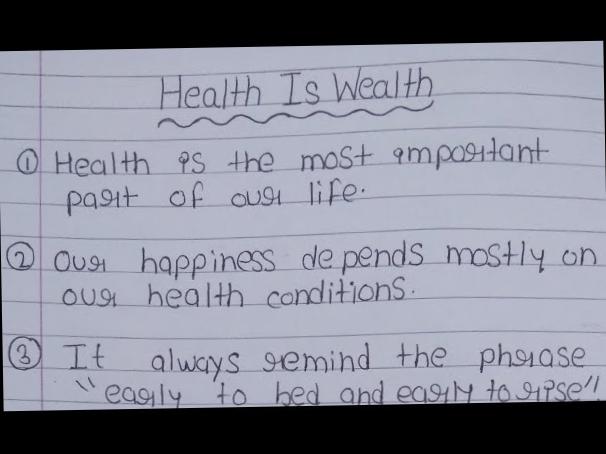 Health Is Wealth
① Health is the most important
part of our life.
② our happiness depends mostly on
our health conditions.
③ It always remind the phrase
"early to bed and early to rise".